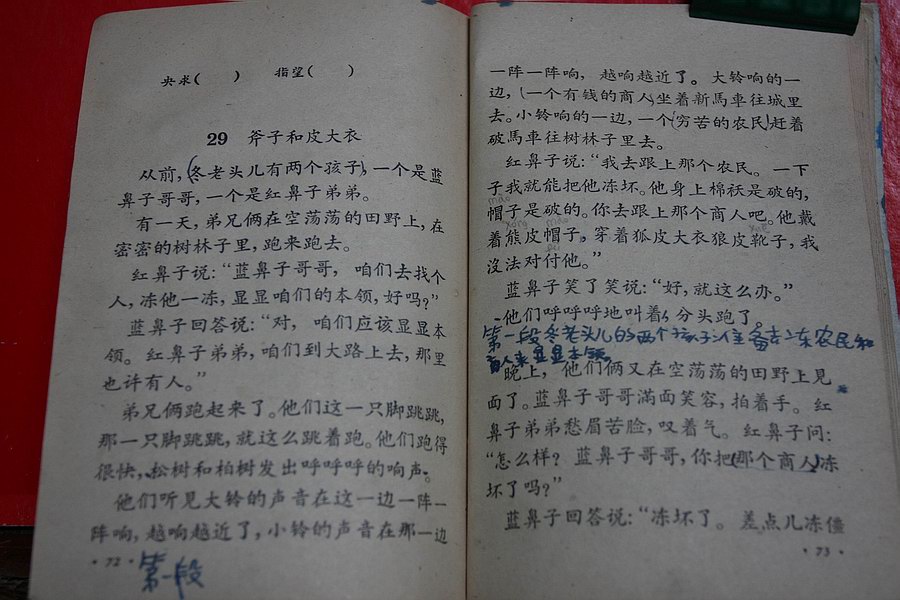 央求(    )    指望(    )
29 斧子和皮大衣
从前，(冬老头儿有两个孩子)，一个是蓝
鼻子哥哥，一个是红鼻子弟弟。
有一天，弟兄俩在空荡荡的田野上，在
密密的树林子里，跑来跑去。
红鼻子说：“蓝鼻子哥哥， 咱们去找个
人，冻他一冻，显显咱们的本领，好吗？”
蓝鼻子回答说：“对， 咱们应该显显本
领。 红鼻子弟弟，咱们到大路上去，那里
也许有人。”
弟兄俩跑起来了。他们这一只脚跳跳，
那一只脚跳跳，就这么跳着跑。他们跑得
很快，松树和柏树发出呼呼呼的响声。
他们听見大铃的声音在这一边一阵一
阵响，越响越近了，小铃的声音在那一边
·72·
第一段
一阵一阵响， 越响越近了。 大铃响的一
边，(一个有钱的商人)坐着新馬車往城里
去。小铃响的一边，一个(穷苦的农民)赶着
破馬車往树林子里去。
红鼻子说：“我去跟上那个农民。 一下
子我就能把他冻坏。他身上棉袄是破的，
mào
帽子是破的。你去跟上那个商人吧。他戴
着熊皮帽子，穿着狐皮大衣狼皮靴子，我
沒法对付他。”
蓝鼻子笑了笑说：“好，就这么办。”
他们呼呼呼地叫着，分头跑了。
第一段冬老头儿的两个孩子准备去冻农民和
商人来显显本领。
晚上， 他们俩又在空荡荡的田野上見
面了。蓝鼻子哥哥滿面笑容，拍着手。 红
鼻子弟弟愁眉苦脸，叹着气。 红鼻子问：
“怎么样？ 蓝鼻子哥哥，你把(那个商人)冻
坏了吗？”
蓝鼻子回答说：“冻坏了。 差点儿冻僵
·73·